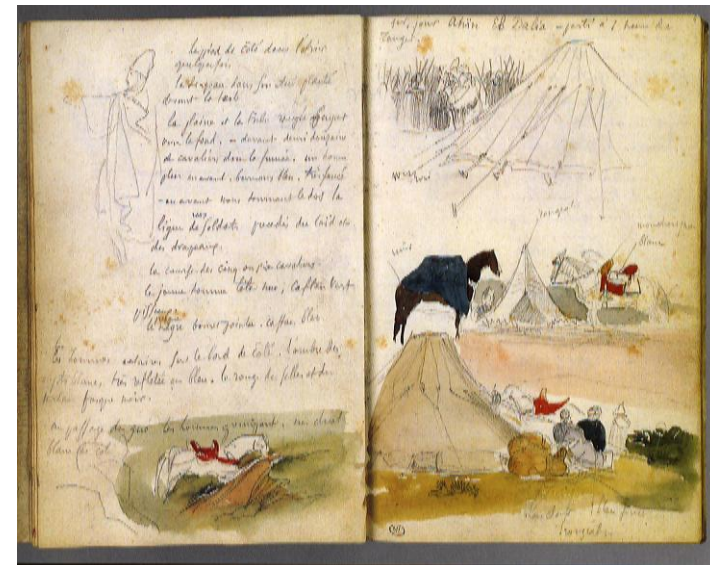 le pied de côté dans l'étrier
quelquefois
le drapeau dans son étui planté
devant la tente
la plaine et les tribus rangées
vers le fond. – devant demi douzaine
de cavaliers dans la fumée. un homme
plus en avant. bournous bleu, très foncé
– en avant nous tournant le dos la
ligne de nos soldats précédés du Caïd et
des drapeaux.
la course des cinq ou six cavaliers –
le jeune homme tête nue, Caftan vert
le nègre bonnet pointu. Caftan bleu
Les hommes éclairés sur le bord de côté. L'ombre des
objets blancs, très reflétée en bleu. le rouge des selles et du
turban presque noir.
au passage du gué les hommes grimpant. un cheval
blanc de côté
jour Ahin El Dalia – parti à 1 heure de
Tanger.
noir
rouge
blanc
bleu foncé